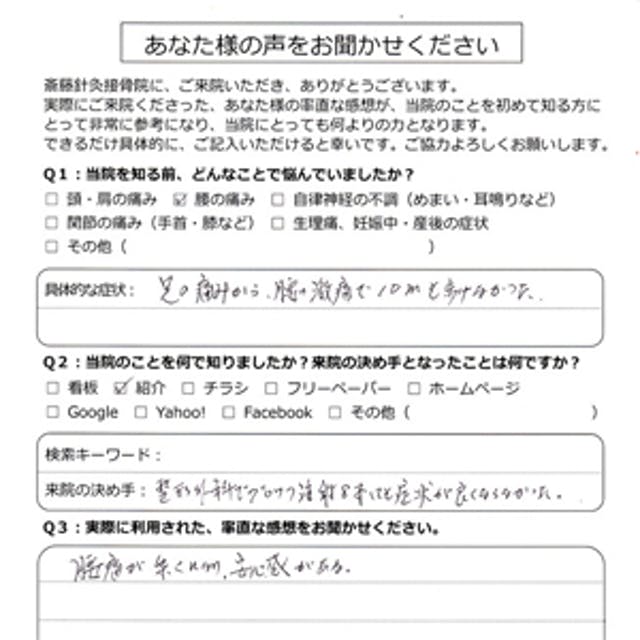 あなた様の声をお聞かせください
斎藤針灸接骨院に、ご来院いただき、ありがとうございます。
実際にご来院くださった、あなた様の率直な感想が、当院のことを初めて知る方に
とって非常に参考になり、当院にとっても何よりの力となります。
できるだけ具体的に、ご記入いただけると幸いです。ご協力よろしくお願いします。
Q1：当院を知る前、どんなことで悩んでいましたか？
□ 頭・肩の痛み ☑ 腰の痛み □ 自律神経の不調（めまい・耳鳴りなど）
□ 関節の痛み（手首・膝など） □ 生理痛、妊娠中・産後の症状
□ その他（ ）
具体的な症状： 足の痛みから、腰の激痛で10mも歩けなかった。
Q2：当院のことを何で知りましたか？来院の決め手となったことは何ですか？
□ 看板 ☑ 紹介 □ チラシ □ フリーペーパー □ ホームページ
□ Google □ Yahoo! □ Facebook □ その他（ ）
検索キーワード：
来院の決め手： 整形外科でブロック注射8本しても症状が良くならなかった。
Q3：実際に利用された、率直な感想をお聞かせください。
腰痛が 安心感がある。